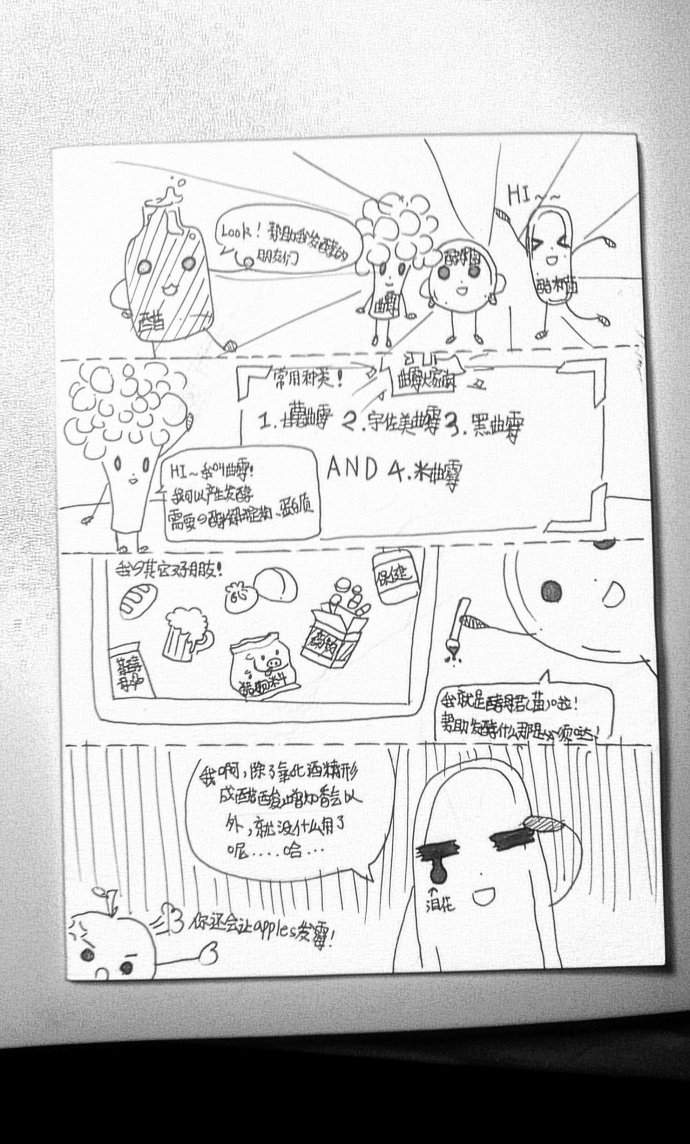 Look! 帮助我发酵的
朋友们
HI~~
醋
曲霉
酵母菌
醋杆菌
常用种类!
曲霉火箭队
1. 2.宇佐美曲霉 3.黑曲霉
AND 4.米曲霉
HI~我叫曲霉!
我可以产生发酵
需要の酶解淀粉、蛋白质
我の其它好朋友!
保健
药物
猪饲料
我就是酵母君(菌)啦!
帮助发酵什么那是必须哒!
我啊,除了氧化酒精形
成醋酸,增加香气以
外,就没什么用了
呢.....哈...
↑
泪花
你还会让apples发霉!